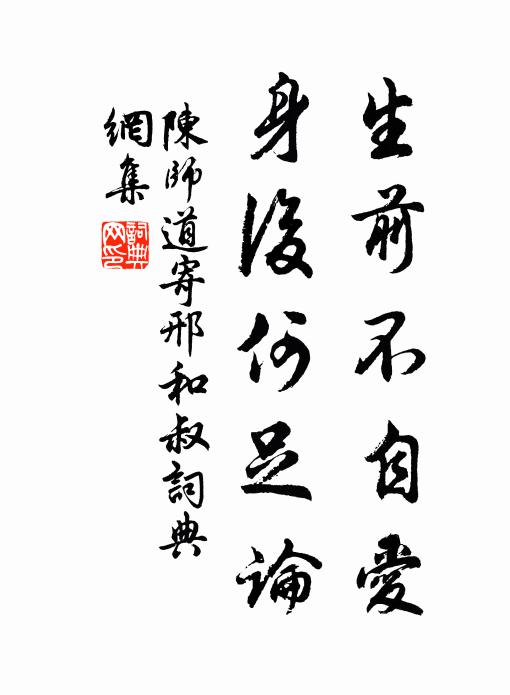 生前不自愛
身後何足論
陳師道寄邢和叔詞典
網集
詞典
网印